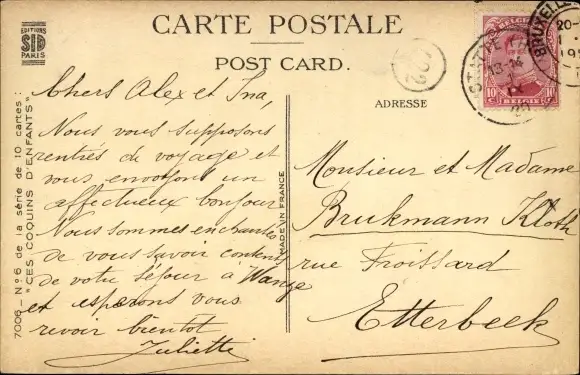 CARTE POSTALE
POST CARD.
EDITIONS
SID
PARIS
ADRESSE
7006 - N° 6 de la série de 10 cartes:
"CES COQUINS D'ENFANTS"
MADE IN FRANCE
Chers Alex et Ina,
Nous vous supposons
rentrés de voyage et
vous envoyons un
affectueux bonjour
Nous sommes enchantés
de vous savoir contents
de votre séjour à Wange
et esperons vous
revoir bientot
Juliette
Monsieur et Madame
Brukmann Kloth
rue Froissard
Etterbeek
BELGIE
10 BELGIE 10
BRUXELLE